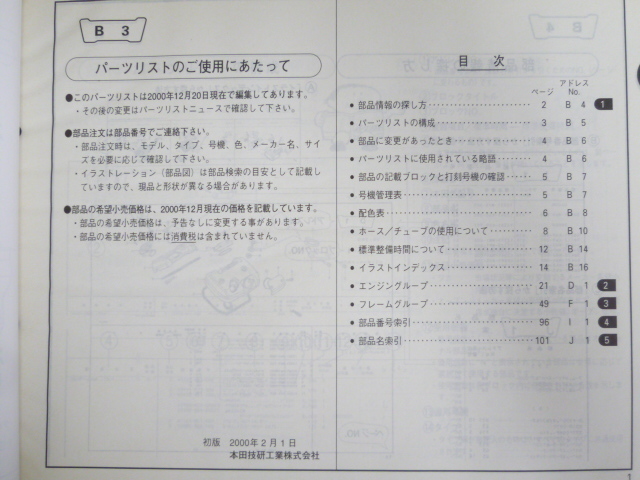 B 3
パーツリストのご使用にあたって
●このパーツリストは2000年12月20日現在で編集してあります。
・その後の変更はパーツリストニュースで確認して下さい。
●部品注文は部品番号でご連絡下さい。
・部品注文時は、モデル、タイプ、号機、色、メーカー名、サイ
ズを必要に応じて確認して下さい。
・イラストレーション（部品図）は部品検索の目安として記載し
ていますので、現品と形状が異なる場合があります。
●部品の希望小売価格は、2000年12月現在の価格を記載しています。
・部品の希望小売価格は、予告なしに変更する事があります。
・部品の希望小売価格には消費税は含まれていません。
初版 2000年2月1日
本田技研工業株式会社
目 次
ページ アドレスNo.
● 部品情報の探し方 2 B 4 1
● パーツリストの構成 3 B 5
● 部品に変更があったとき 4 B 6
● パーツリストに使用されている略語 4 B 6
● 部品の記載ブロックと打刻号機の確認 5 B 7
● 号機管理表 5 B 7
● 配色表 6 B 8
● ホース／チューブの使用について 8 B 10
● 標準整備時間について 12 B 14
● イラストインデックス 14 B 16
● エンジングループ 21 D 1 2
● フレームグループ 49 F 1 3
● 部品番号索引 96 I 1 4
● 部品名索引 101 J 1 5
1